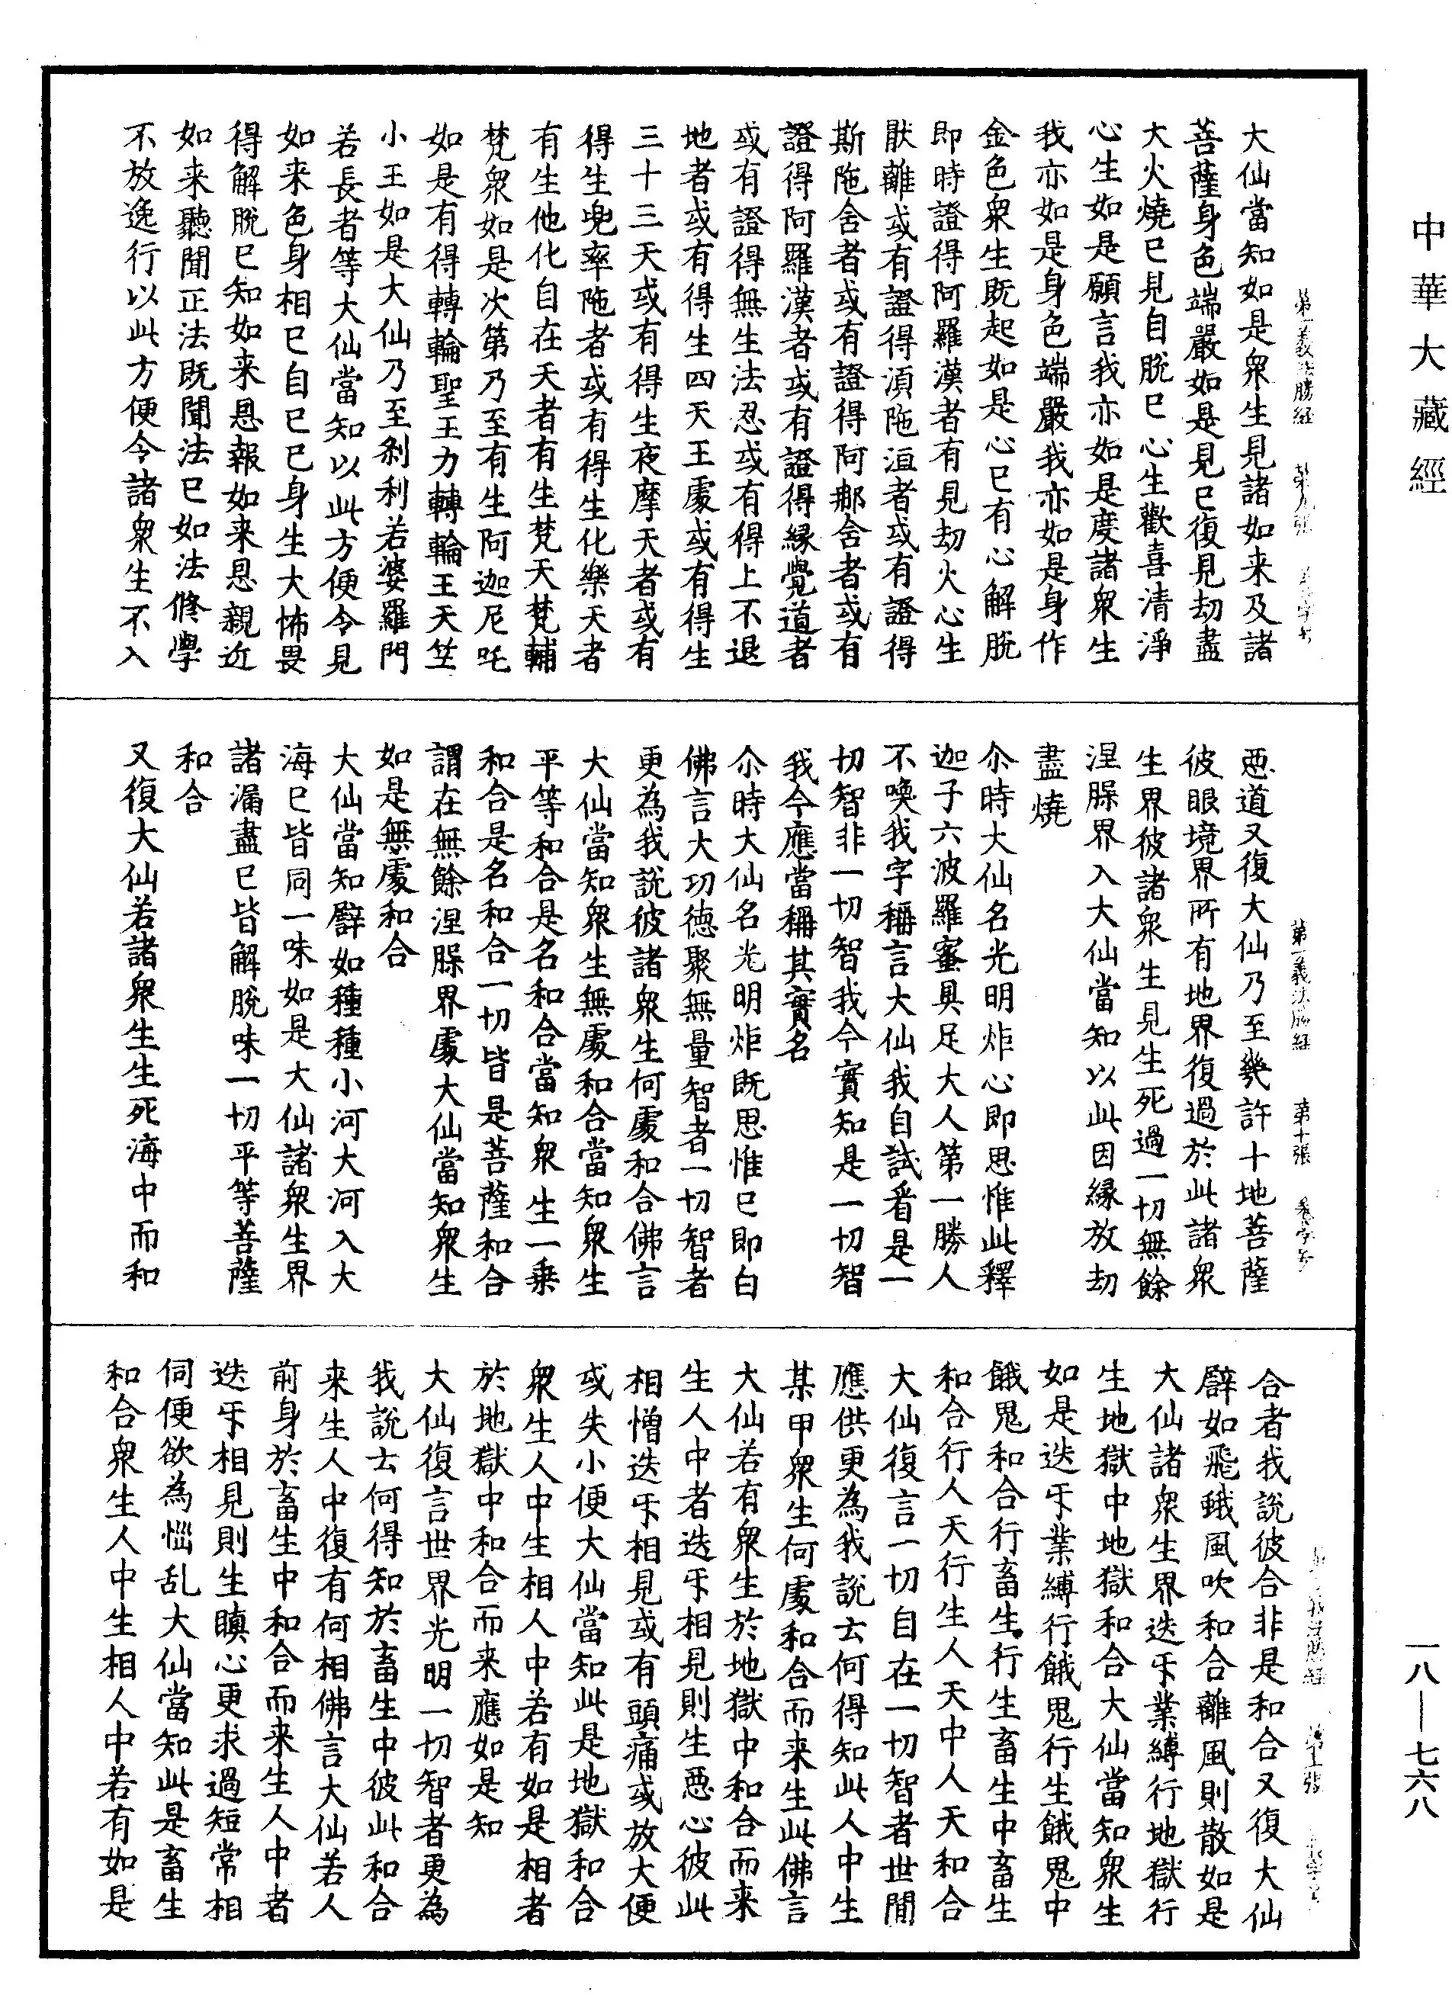 中華大藏經
大仙當知如是眾生見諸如来及諸
菩薩身色端嚴如是見已復見劫盡
大火燒已見自脫已心生歡喜清淨
心生如是願言我亦如是度諸眾生
我亦如是身色端嚴我亦如是身作
金色眾生既起如是心已有心解脫
即時證得阿羅漢者有見劫火心生
猒離或有證得湏陁洹者或有證得
斯陁含者或有證得阿那含者或有
證得阿羅漢者或有證得緣覺道者
或有證得無生法忍或有得上不退
地者或有得生四天王處或有得生
三十三天或有得生夜摩天者或有
得生兜率陁者或有得生化樂天者
有生他化自在天者有生梵天梵輔
梵眾如是次第乃至有生阿迦尼吒
如是有得轉輪聖王力轉輪王天竺
小王如是大仙乃至剎利若婆羅門
若長者等大仙當知以此方便令見
如来色身相已自已已身生大怖畏
得解脫已知如来恩報如来恩親近
如来聽聞正法既聞法已如法修學
不放逸行以此方便令諸眾生不入
第一義法勝經 第九張
惡道又復大仙乃至幾許十地菩薩
彼眼境界所有地界復過於此諸眾
生界彼諸眾生見生死過一切無餘
涅槃界入大仙當知以此因緣放劫
盡燒
尒時大仙名光明炬心即思惟此釋
迦子六波羅蜜具足大人第一勝人
不喚我字稱言大仙我自試看是一
切智非一切智我今實知是一切智
我今應當稱其實名
尒時大仙名光明炬既思惟已即白
佛言大功德聚無量智者一切智者
更為我說彼諸眾生何處和合佛言
大仙當知眾生無處和合當知眾生
平等和合是名和合當知眾生一乘
和合是名和合一切皆是菩薩和合
謂在無餘涅槃界處大仙當知眾生
如是無處和合
大仙當知譬如種種小河大河入大
海已皆同一味如是大仙諸眾生界
諸漏盡已皆解脫味一切平等菩薩
和合
又復大仙若諸眾生生死海中而和
第一義法勝經 第十張
合者我說彼合非是和合又復大仙
譬如飛蛾風吹和合離風則散如是
大仙諸眾生界迭乎業縛行地獄行
生地獄中地獄和合大仙當知眾生
如是迭乎業縛行餓鬼行生餓鬼中
餓鬼和合行畜生行生畜生中畜生
和合行人天行生人天中人天和合
大仙復言一切自在一切智者世間
應供更為我說云何得知此人中生
某甲眾生何處和合而来生此佛言
大仙若有眾生於地獄中和合而来
生人中者迭乎相見則生惡心彼此
相憎迭乎相見或有頭痛或放大便
或失小便大仙當知此是地獄和合
眾生人中生相人中若有如是相者
於地獄中和合而来應如是知
大仙復言世界光明一切智者更為
我說云何得知於畜生中彼此和合
来生人中復有何相佛言大仙若人
前身於畜生中和合而来生人中者
迭乎相見則生瞋心更求過短常相
伺便欲為惱乱大仙當知此是畜生
和合眾生人中生相人中若有如是
一八—七六八